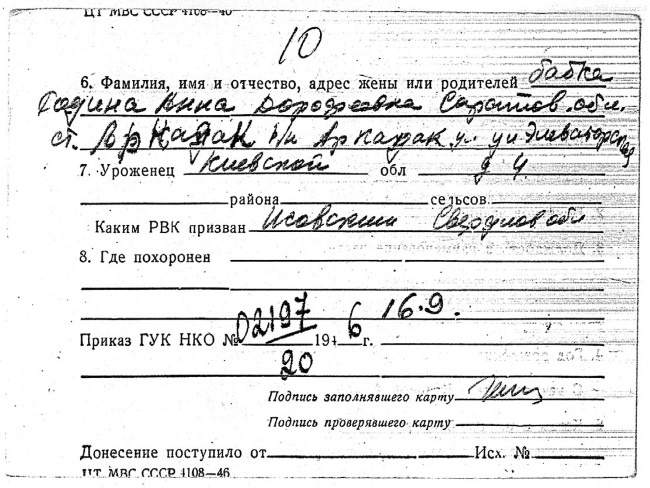 ЦТ МВС СССР 4108—46
10
6. Фамилия, имя и отчество, адрес жены или родителей бабка
Анна Дорофеевна Саратов. обл.
ст. Аркадак п/о Аркадак ул.
7. Уроженец Киевской обл д 4
района сельсов.
Каким РВК призван Исовским Свердлов обл
8. Где похоронен
16.9.
Приказ ГУК НКО № 02197 194 6 г.
20
Подпись заполнявшего карту
Подпись проверявшего карту
Донесение поступило от Исх. №
ЦТ МВС СССР 4108—46